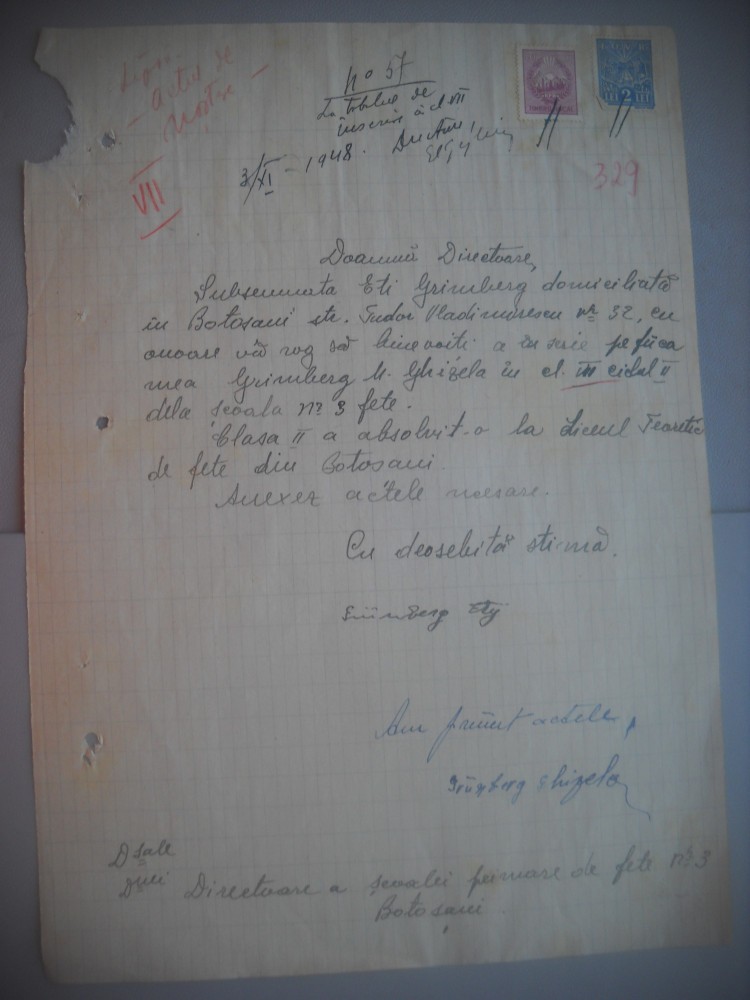 Lipsă
- actul de
naștere -
VII
Nº 57
La tabloul de
înscriere a cl VII
3/XI - 1948. Directoare,
2
329
Doamnă Directoare,
Subsemnata Eti Grimberg domiciliată
în Botosani str. Tudor Vladimirescu nº 32, cu
onoare vă rog să binevoiti a înscrie pe fiica
mea Grimberg M. Ghizela în cl. III ciclul II
dela școala nº 3 fete.
Clasa II a absolvit-o la Liceul Teoretic
de fete din Botosani.
Anexez actele necesare.
Cu deosebită stimă.
Grünberg Ety
Am primit actele,
Grünberg Ghizela
D sale
Dnei Directoare a școalei primare de fete nº 3
Botoșani